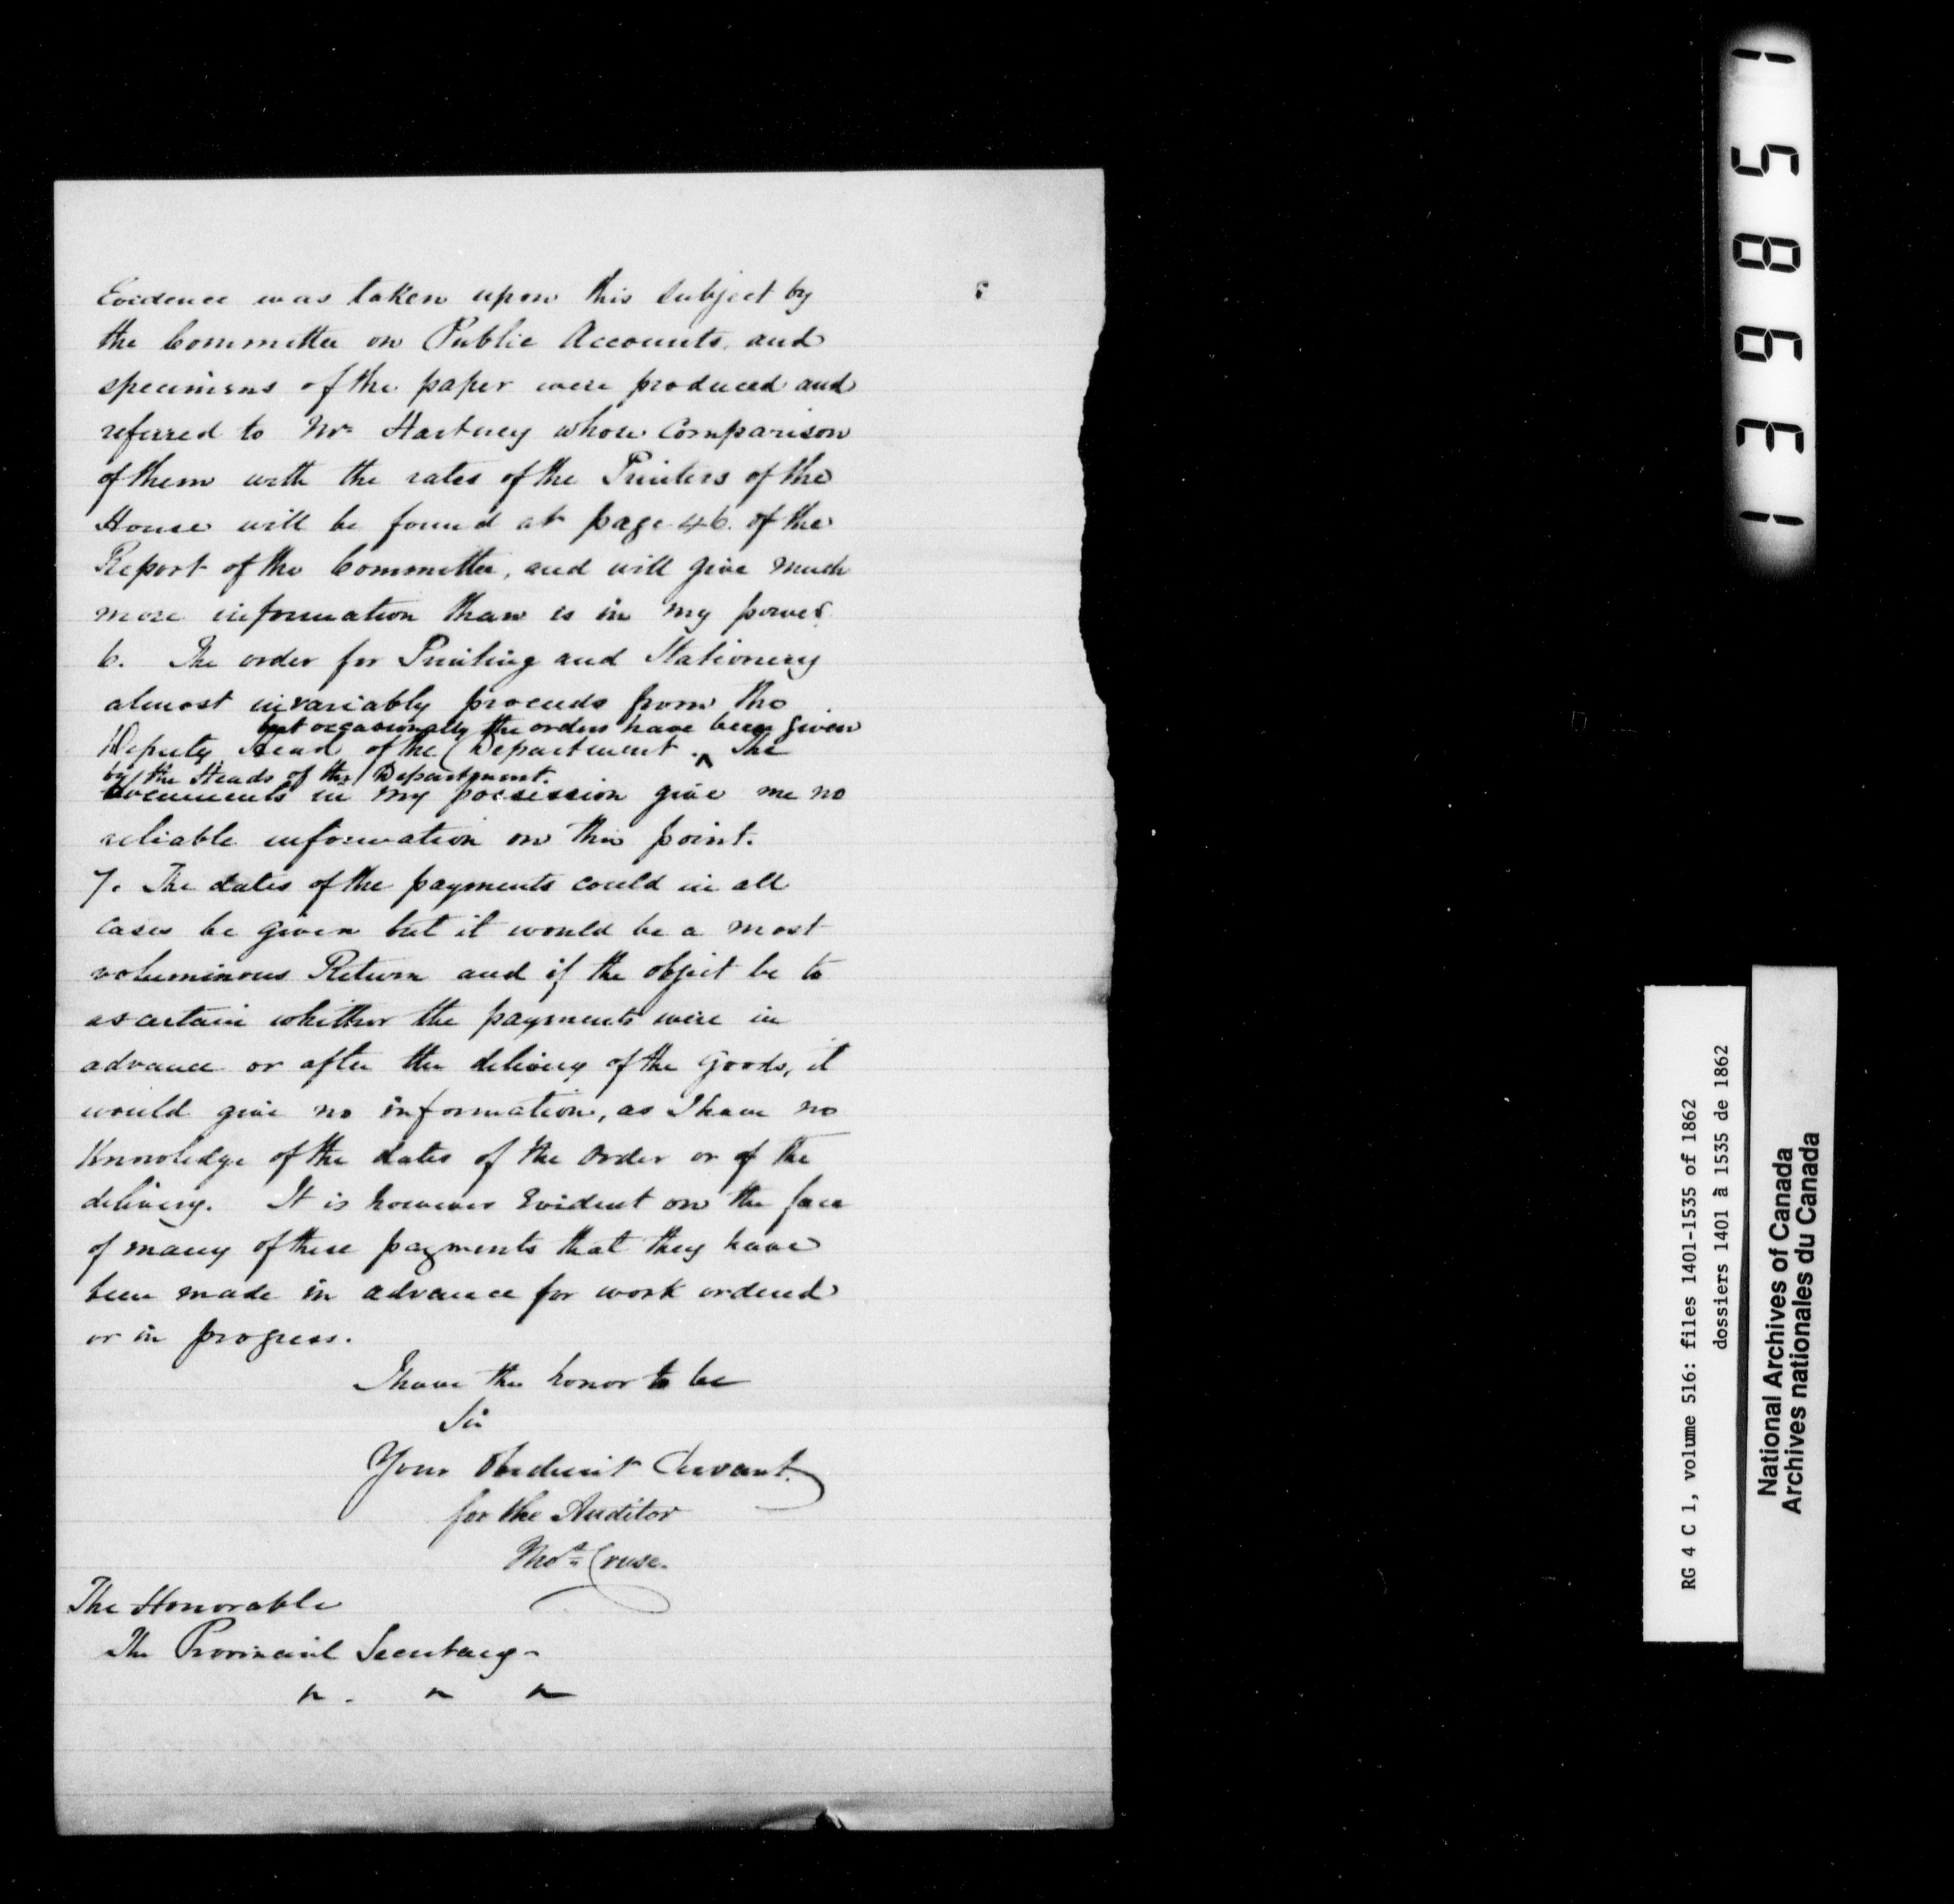 Evidence was taken upon this subject by
the Committee on Public Accounts, and
specimens of the paper were produced and
referred to Mr Hartney whose Comparison
of them with the rates of the Printers of the
House will be found at page 46. of the
Report of the Committee, and will give much
more information than is in my power.
6. The order for Printing and Stationery
almost invariably proceeds from the
but occasionally the orders have been given
Deputy Head of the Department . ^ The
by the Heads of the Department.
documents in my possession give me no
reliable information on this point.
7. The dates of the payments could in all
cases be given but it would be a most
voluminous Return and if the object be to
ascertain whether the payments were in
advance or after the delivery of the goods, it
would give no information, as I have no
Knowledge of the dates of the Order or of the
delivery. It is however Evident on the face
of many of these payments that they have
been made in advance for work ordered
or in progress.
I have the honor to be
Sir
Your Obedient Servant.
for the Auditor
Thos Cruse.
The Honorable
The Provincial Secretary
15863 1
RG 4 C 1, volume 516: files 1401-1535 of 1862
dossiers 1401 à 1535 de 1862
National Archives of Canada
Archives nationales du Canada